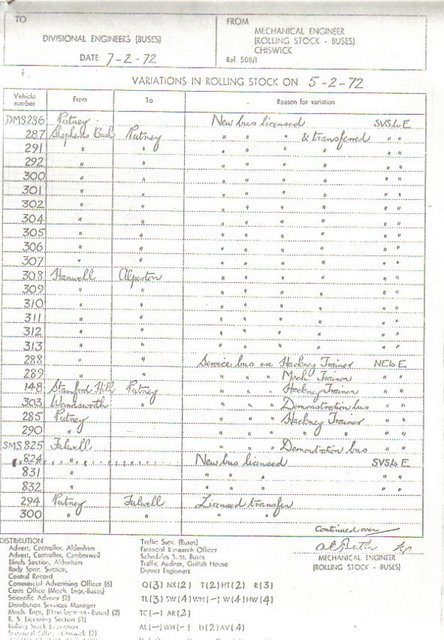 TO
DIVISIONAL ENGINEERS (BUSES)
DATE 7-2-72
FROM
MECHANICAL ENGINEER
(ROLLING STOCK - BUSES)
CHISWICK
Ref. 508/1
VARIATIONS IN ROLLING STOCK ON 5-2-72
Vehicle number From To Reason for variation
DMS286 Putney New bus licensed SVSLE
287 Shepherds Bush Putney " " " & transferred " "
291 " " " " " " " "
292 " " " " " " " "
300 " " " " " " " "
301 " " " " " " " "
302 " " " " " " " "
304 " " " " " " " "
305 " " " " " " " "
306 " " " " " " " "
307 " " " " " " " "
308 Hanwell Alperton " " " " " "
309 " " " " " " " "
310 " " " " " " " "
311 " " " " " " " "
312 " " " " " " " "
313 " " " " " " " "
288 " " Service bus ex Hackney Trainer NCLE
289 " " " " " Mech. Trainer " "
148 Stamford Hill Putney " " " Hackney Trainer " "
303 Wandsworth " " " " Demonstration bus " "
285 Putney " " " Hackney Trainer " "
290 " " " " " " " "
SMS825 Fulwell " " " Demonstration bus " "
824 " New bus licensed SVSLE
831 " " " " " "
832 " " " " " "
294 Putney Fulwell Licensed transfer
300 " " " "
Continued over
MECHANICAL ENGINEER
(ROLLING STOCK - BUSES)
DISTRIBUTION
Advert. Controller, Aldenham
Advert. Controller, Camberwell
Blinds Section, Aldenham
Body Spec. Section,
Central Record
Commercial Advertising Officer (6)
Costs Office (Mech. Engr. Buses)
Scientific Adviser (2)
Distribution Services Manager
Mech. Engr. (Development - Buses) (2)
R. S. Licensing Section (3)
Rolling Stock Inspection
Traffic Supt. (Buses)
Financial Research Officer
Schedules Supt. Buses
Traffic Auditor, Griffith House
District Engineers
Q(3) NX(2) T(2) HT(2) R(3)
TL(3) SW(4) WH(-) W(4) HW(4)
TC(-) AK(2)